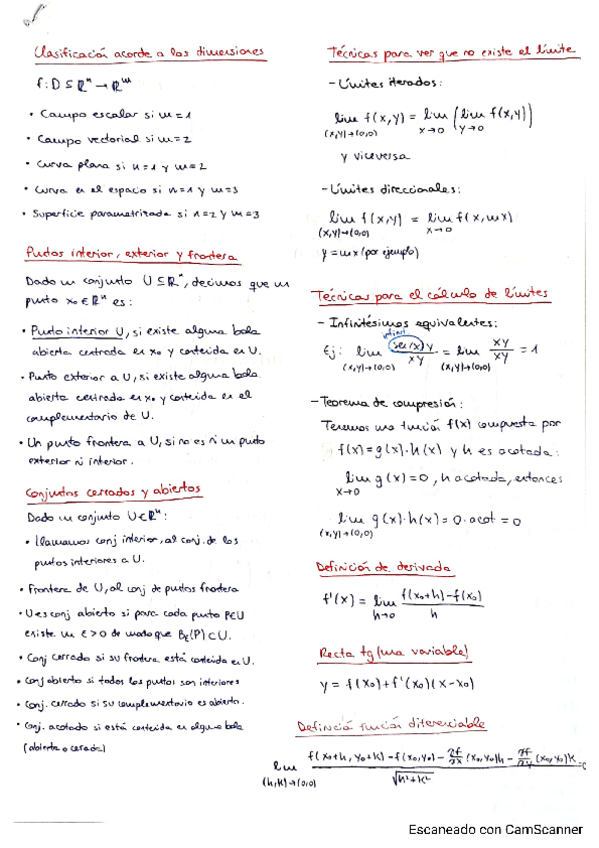 Clasificación acorde a las dimensiones
f: D ⊆ ℝⁿ → ℝᵐ
• Campo escalar si m = 1
• Campo vectorial si m = 2
• Curva plana si n = 1 y m = 2
• Curva en el espacio si n = 1 y m = 3
• Superficie parametrizada si n = 2 y m = 3
Puntos interior, exterior y frontera
Dado un conjunto U ⊆ ℝⁿ, decimos que un
punto x₀ ∈ ℝⁿ es:
• Punto interior U, si existe alguna bola
abierta centrada en x₀ y contenida en U.
• Punto exterior a U, si existe alguna bola
abierta centrada en x₀ y contenida en el
complementario de U.
• Un punto frontera a U, si no es ni un punto
exterior ni interior.
Conjuntos cerrados y abiertos
Dado un conjunto U ⊂ ℝⁿ:
• Llamamos conj interior, al conj. de los
puntos interiores a U.
• Frontera de U, al conj de puntos frontera
• U es conj abierto si para cada punto P ∈ U
existe un ε > 0 de modo que Bε(P) ⊂ U.
• Conj cerrado si su frontera está contenida en U.
• Conj abierto si todos los puntos son interiores
• Conj. cerrado si su complementario es abierto.
• Conj. acotado si está contenida en alguna bola
(abierta o cerrada)
Técnicas para ver que no existe el límite
- Límites iterados:
lim f(x,y) = lim (lim f(x,y))
(x,y)→(0,0) x→0 y→0
y viceversa
- Límites direccionales:
lim f(x,y) = lim f(x,mx)
(x,y)→(0,0) x→0
y = mx (por ejemplo)
Técnicas para el cálculo de límites
- Infinitésimos equivalentes:
Ej: lim sen(x)y / xy = lim xy / xy = 1
(x,y)→(0,0) (x,y)→(0,0)
- Teorema de compresión:
Tenemos una función f(x) compuesta por
f(x) = g(x)·h(x) y h es acotada:
lim g(x) = 0, h acotada, entonces
x→0
lim g(x)·h(x) = 0·acot = 0
(x,y)→(0,0)
Definición de derivada
f'(x) = lim f(x₀+h) - f(x₀) / h
h→0
Recta tg (una variable)
y = f(x₀) + f'(x₀)(x - x₀)
Definición función diferenciable
lim f(x₀+h, y₀+k) - f(x₀,y₀) - ∂f/∂x (x₀,y₀)h - ∂f/∂y (x₀,y₀)k / √h²+k² = 0
(h,k)→(0,0)
Escaneado con CamScanner